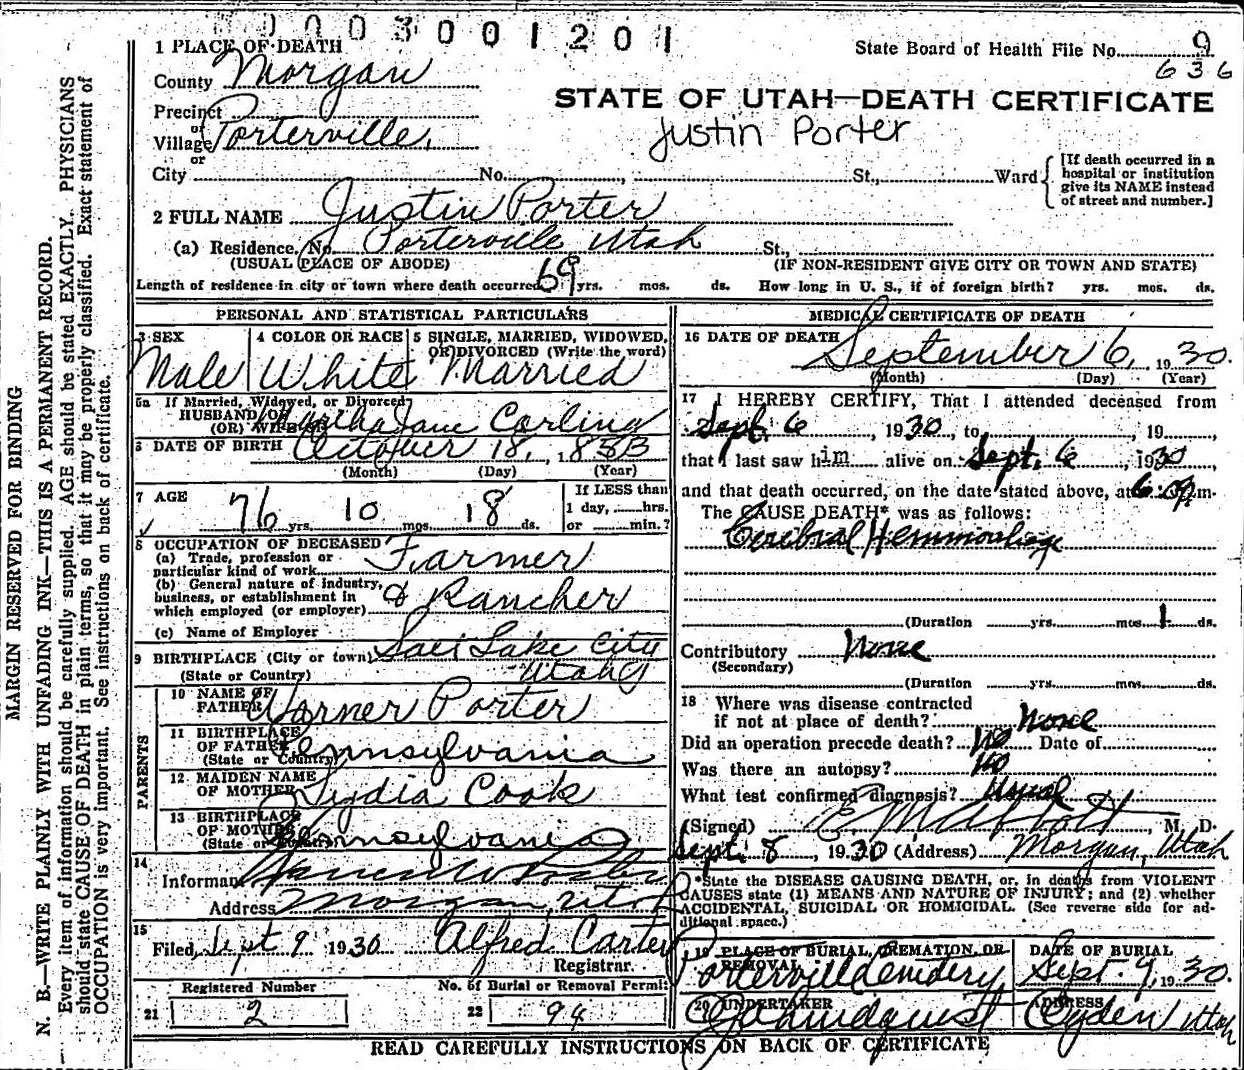 0003001201
1 PLACE OF DEATH
State Board of Health File No. 9
636
County Morgan
STATE OF UTAH—DEATH CERTIFICATE
Precinct
or
Village Porterville,
Justin Porter
or
City No. , St., Ward
[If death occurred in a
hospital or institution
give its NAME instead
of street and number.]
2 FULL NAME Justin Porter
(a) Residence. No. Porterville Utah St.,
(USUAL PLACE OF ABODE) (IF NON-RESIDENT GIVE CITY OR TOWN AND STATE)
Length of residence in city or town where death occurred 69 yrs. mos. ds. How long in U. S., if of foreign birth? yrs. mos. ds.
PERSONAL AND STATISTICAL PARTICULARS
3 SEX 4 COLOR OR RACE 5 SINGLE, MARRIED, WIDOWED,
OR DIVORCED (Write the word)
Male White Married
5a If Married, Widowed, or Divorced
HUSBAND OF
(OR) WIFE OF Martha Jane Carling
6 DATE OF BIRTH October 18, 1853
(Month) (Day) (Year)
7 AGE 76 yrs. 10 mos. 18 ds.
If LESS than
1 day, hrs.
or min.?
8 OCCUPATION OF DECEASED
(a) Trade, profession or
particular kind of work Farmer
(b) General nature of industry,
business, or establishment in
which employed (or employer) & Rancher
(c) Name of Employer
9 BIRTHPLACE (City or town) Salt Lake City
(State or Country) Utah
PARENTS
10 NAME OF
FATHER Warner Porter
11 BIRTHPLACE
OF FATHER
(State or Country) Pennsylvania
12 MAIDEN NAME
OF MOTHER Lydia Cook
13 BIRTHPLACE
OF MOTHER
(State or Country) Pennsylvania
14
Informant Porter
Address Morgan, Utah
15
Filed, Sept 9 1930 Alfred Carter
Registrar.
Registered Number No. of Burial or Removal Permit
21 2 22 94
MEDICAL CERTIFICATE OF DEATH
16 DATE OF DEATH September 6, 1930.
(Month) (Day) (Year)
17 I HEREBY CERTIFY, That I attended deceased from
Sept. 6, 1930, to , 19 ,
that I last saw him alive on Sept. 6, 1930
and that death occurred, on the date stated above, at 6: p.m.
The CAUSE DEATH* was as follows:
Cerebral Hemmorhage
(Duration yrs. mos. 1 ds.
Contributory None
(Secondary)
(Duration yrs. mos. ds.
18 Where was disease contracted
if not at place of death? None
Did an operation precede death? No Date of
Was there an autopsy? No
What test confirmed diagnosis? Usual
(Signed) E M Abbott, M. D.
Sept. 8, 1930 (Address) Morgan, Utah
*State the DISEASE CAUSING DEATH, or, in deaths from VIOLENT
CAUSES state (1) MEANS AND NATURE OF INJURY; and (2) whether
ACCIDENTAL, SUICIDAL OR HOMICIDAL. (See reverse side for ad-
ditional space.)
19 PLACE OF BURIAL, CREMATION, OR
REMOVAL
Porterville Cemetery
DATE OF BURIAL
Sept. 9, 1930.
20 UNDERTAKER
Lindquist
ADDRESS
Ogden Utah
READ CAREFULLY INSTRUCTIONS ON BACK OF CERTIFICATE
MARGIN RESERVED FOR BINDING
N. B.—WRITE PLAINLY WITH UNFADING INK—THIS IS A PERMANENT RECORD.
Every item of information should be carefully supplied. AGE should be stated EXACTLY. PHYSICIANS
should state CAUSE OF DEATH in plain terms, so that it may be properly classified. Exact statement of
OCCUPATION is very important. See instructions on back of certificate.